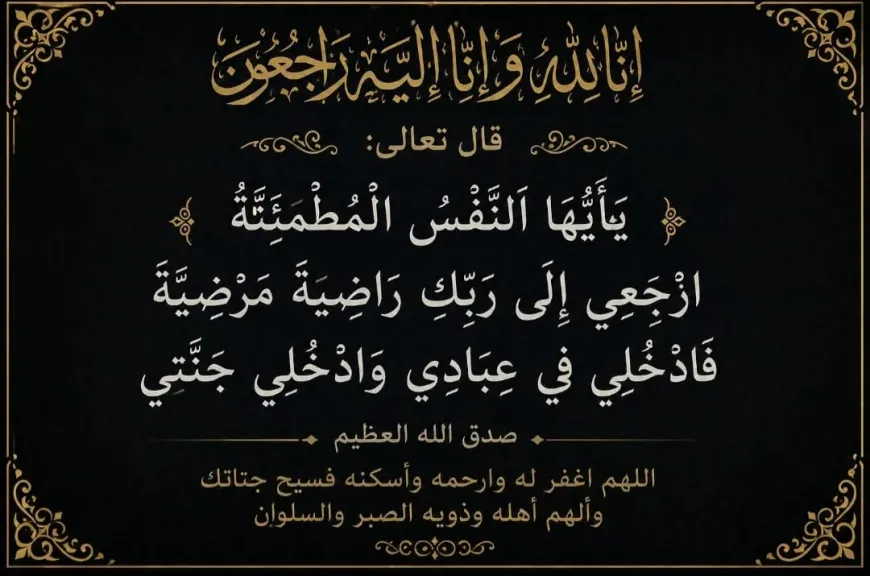 إِنَّا لِلَّهِ وَإِنَّا إِلَيْهِ رَاجِعُونَ
قال تعالى:
يَأَيُّهَا اَلنَّفْسُ الْمُطْمَئِنَّةُ
ارْجَعِي إِلَى رَبِّكِ رَاضِيَةَ مَرْضِيَّةَ
فَادْخُلِي فِي عِبَادِي وَادْخُلِي جَنَّتِي
صدق الله العظيم
اللهم اغفر له وارحمه وأسكنه فسيح جتاتك
وألهم أهله وذويه الصبر والسلوان